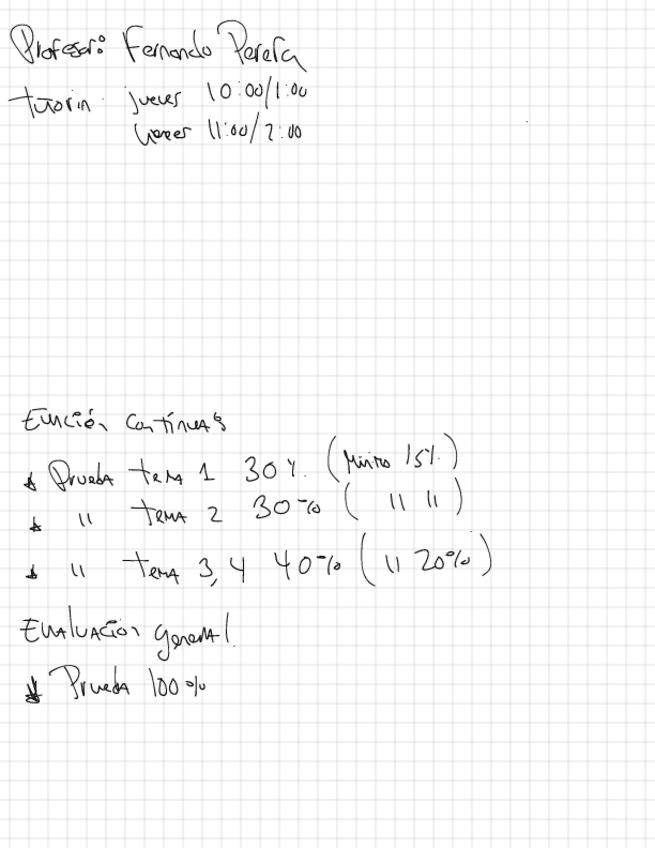 Profesor: Fernando Pereira
tutoria: jueves 10:00/1:00
11:00/2:00
continua
* Prueba tema 1 30% (Mínimo 15%)
* " TEMA 2 30% ( " " )
* " tema 3,4 40% ( " 20%)
Evaluación general.
* Prueba 100%